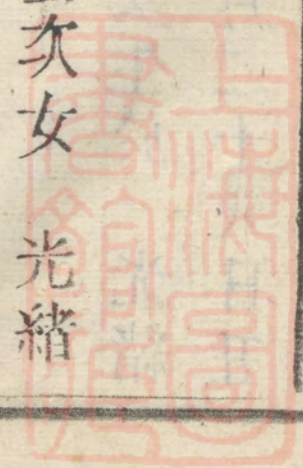 次女　光緒
上海圖
書館藏